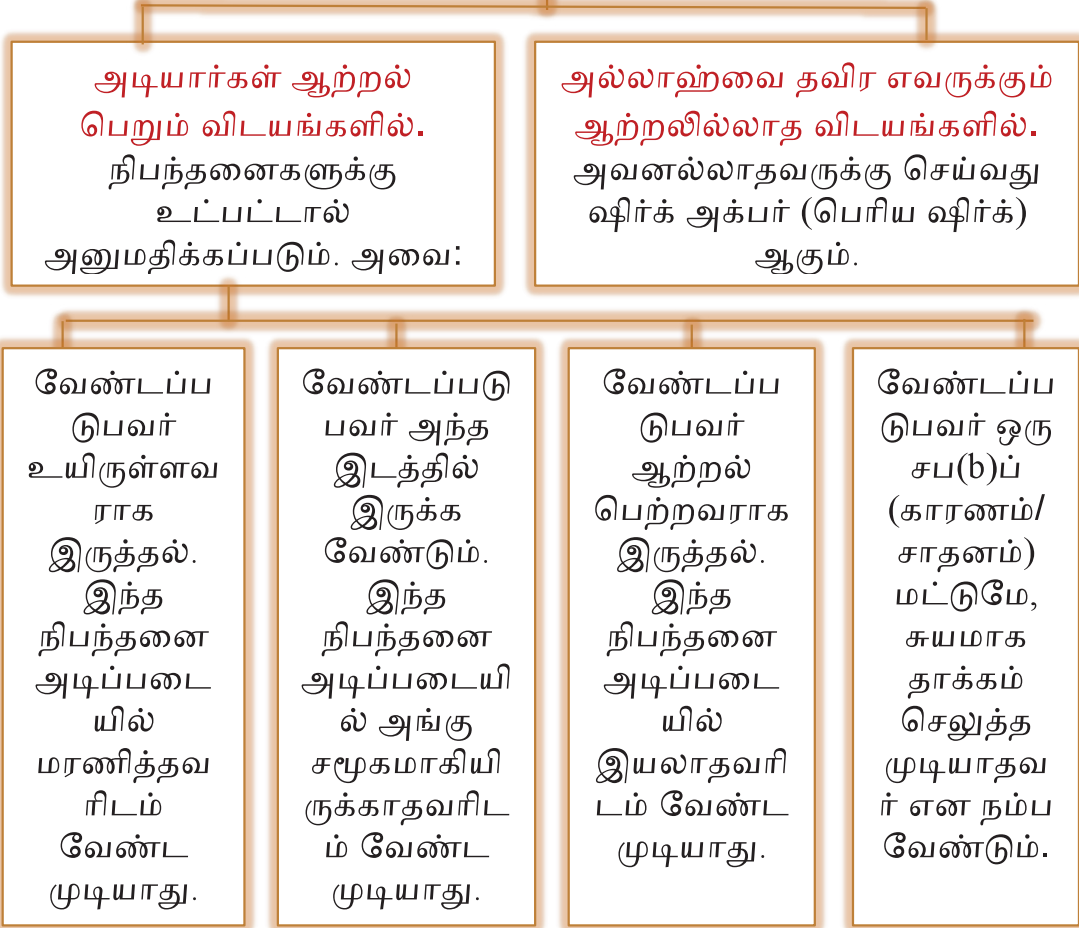 அடியார்கள் ஆற்றல்
பெறும் விடயங்களில்.
நிபந்தனைகளுக்கு
உட்பட்டால்
அனுமதிக்கப்படும். அவை:
அல்லாஹ்வை தவிர எவருக்கும்
ஆற்றலில்லாத விடயங்களில்.
அவனல்லாதவருக்கு செய்வது
ஷிர்க் அக்பர் (பெரிய ஷிர்க்)
ஆகும்.
வேண்டப்ப
டுபவர்
உயிருள்ளவ
ராக
இருத்தல்.
இந்த
நிபந்தனை
அடிப்படை
யில்
மரணித்தவ
ரிடம்
வேண்ட
முடியாது.
வேண்டப்படு
பவர் அந்த
இடத்தில்
இருக்க
வேண்டும்.
இந்த
நிபந்தனை
அடிப்படையி
ல் அங்கு
சமூகமாகியி
ருக்காதவரிட
ம் வேண்ட
முடியாது.
வேண்டப்ப
டுபவர்
ஆற்றல்
பெற்றவராக
இருத்தல்.
இந்த
நிபந்தனை
அடிப்படை
யில்
இயலாதவரி
டம் வேண்ட
முடியாது.
வேண்டப்ப
டுபவர் ஒரு
சப(b)ப்
(காரணம்/
சாதனம்)
மட்டுமே,
சுயமாக
தாக்கம்
செலுத்த
முடியாதவ
ர் என நம்ப
வேண்டும்.